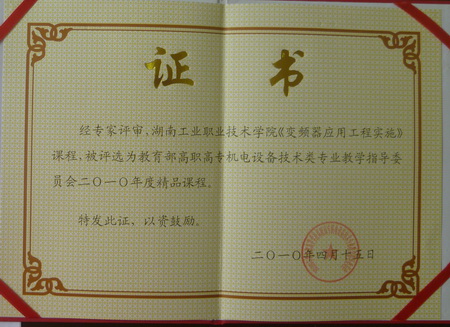 证书
经专家评审，湖南工业职业技术学院《变频器应用工程实施》
课程，被评选为教育部高职高专机电设备技术类专业教学指导委
员会二〇一〇年度精品课程。
特发此证、以资鼓励。
二〇一〇年四月十五日